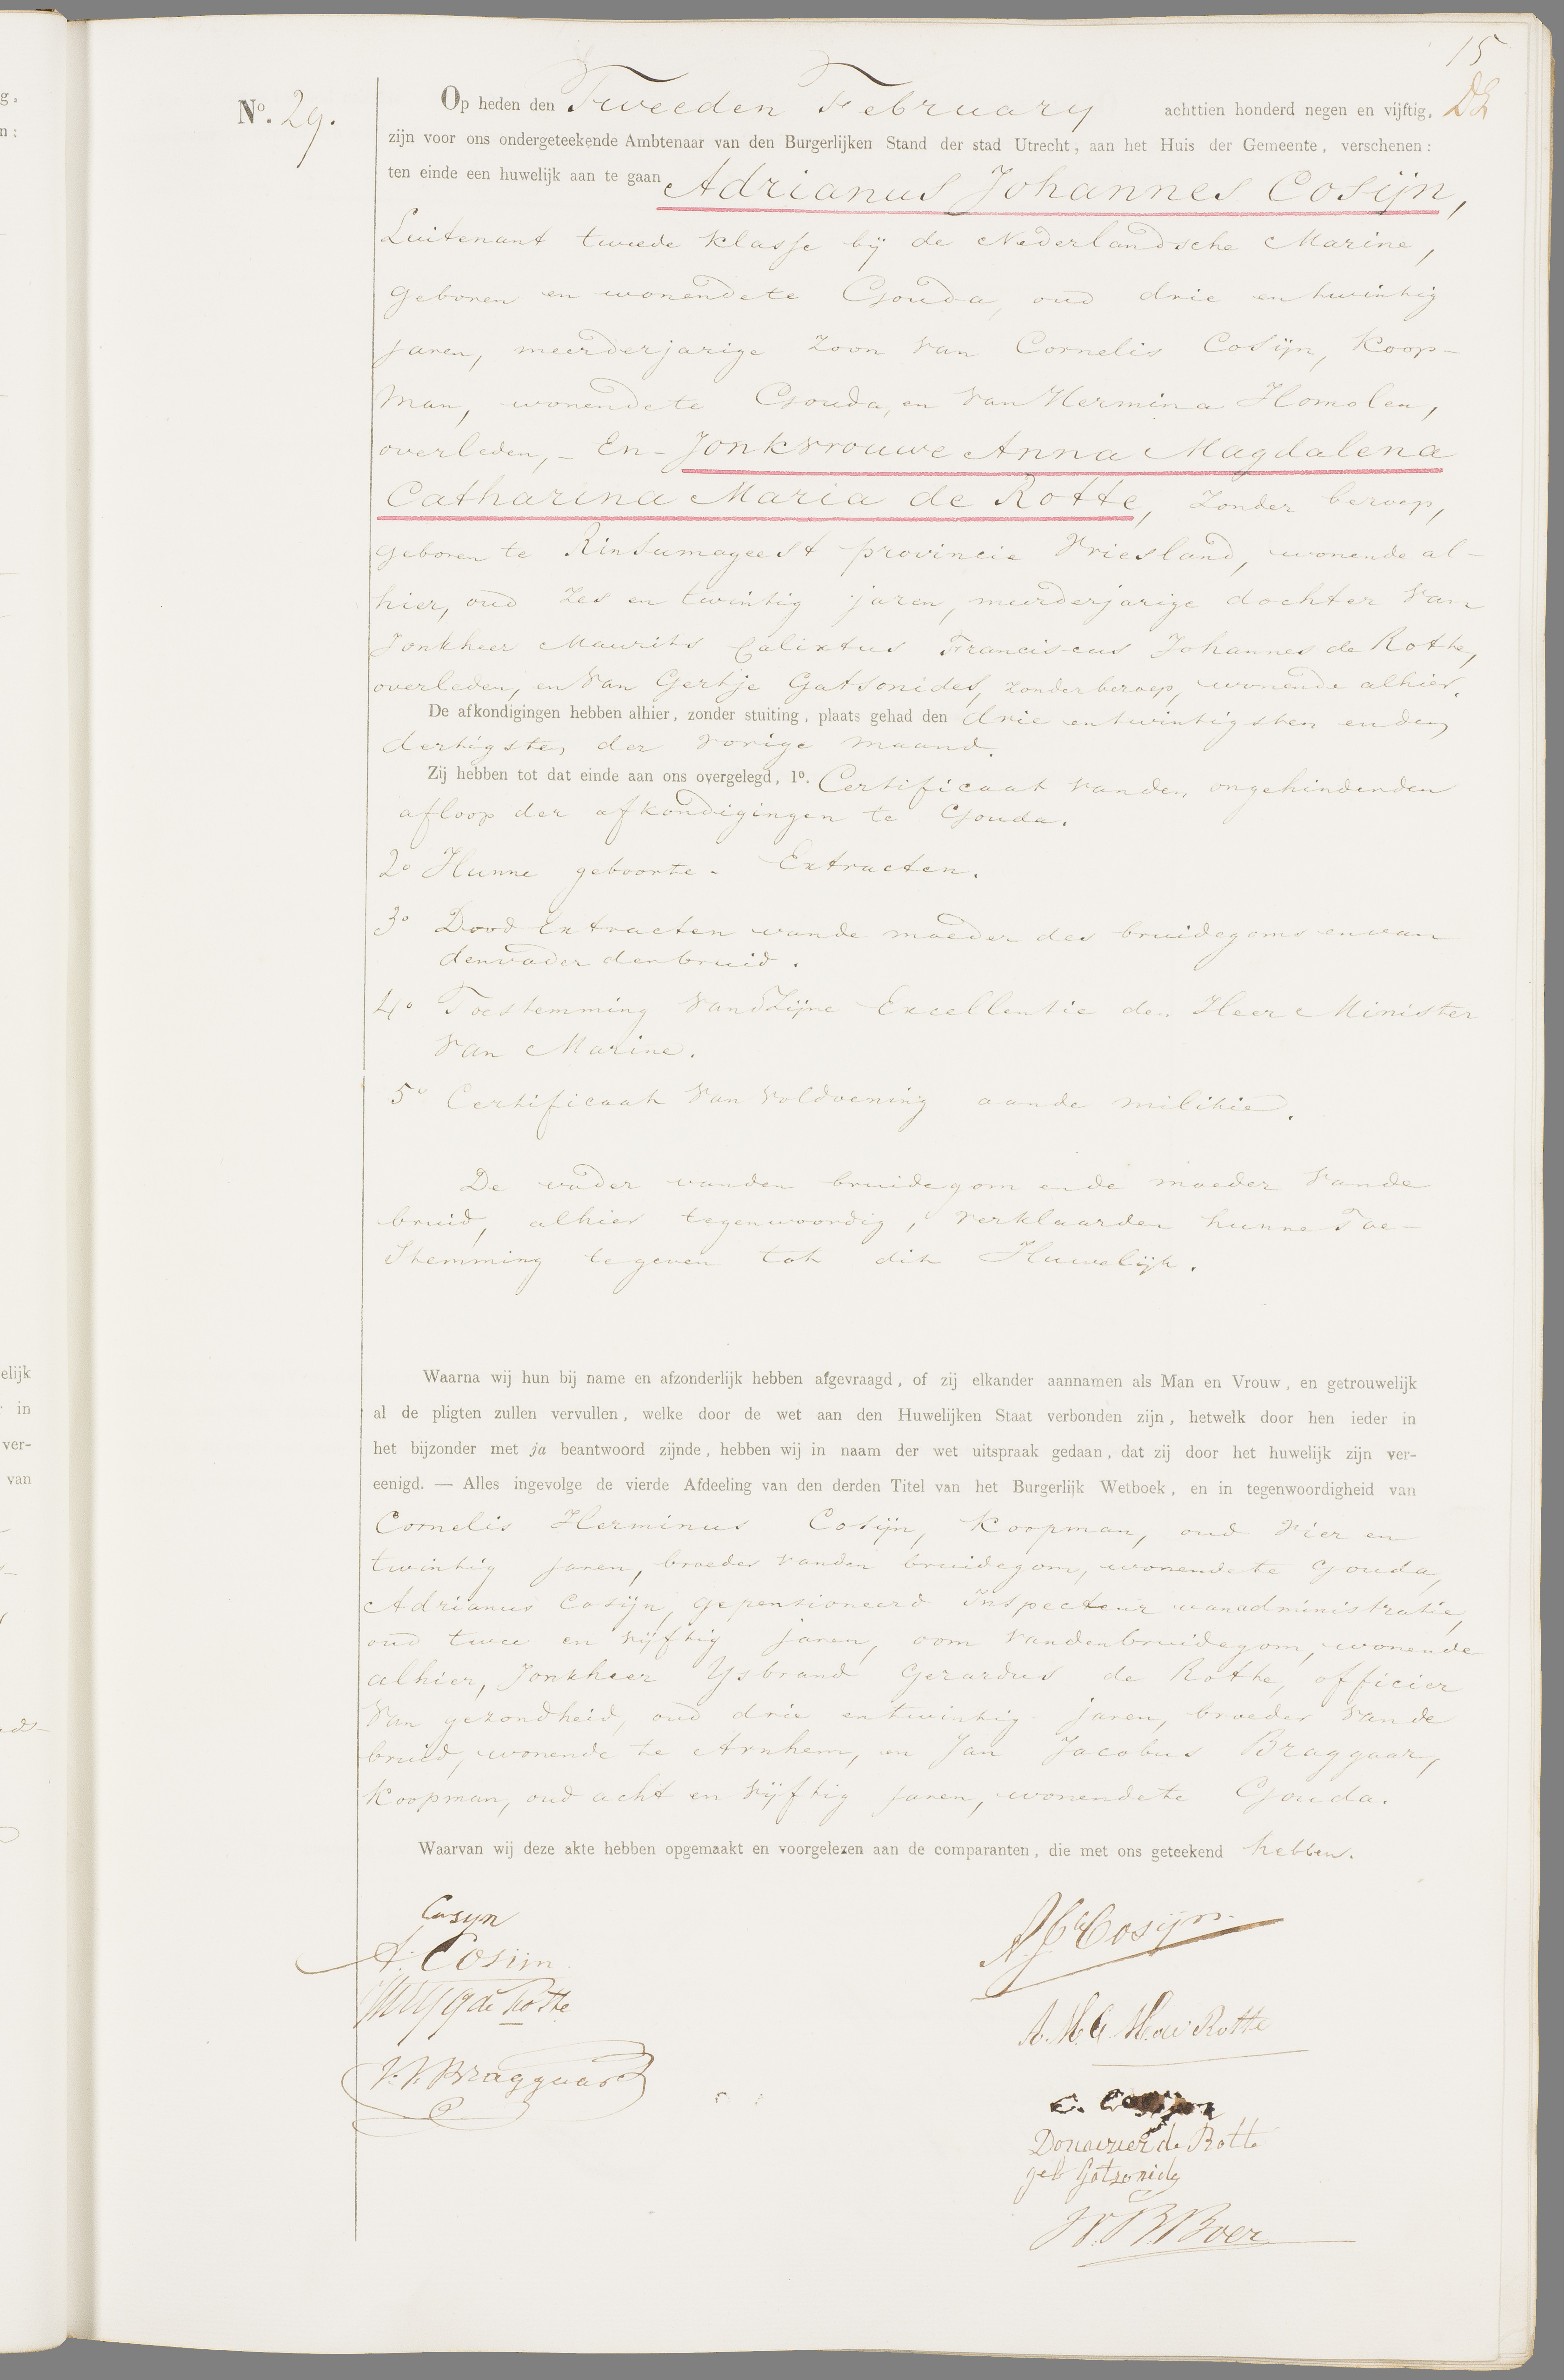 15
DL
No. 29.
Op heden den Tweeden February achttien honderd negen en vijftig,
zijn voor ons ondergeteekende Ambtenaar van den Burgerlijken Stand der stad Utrecht, aan het Huis der Gemeente, verschenen:
ten einde een huwelijk aan te gaan Adrianus Johannes Cosijn,
Luitenant tweede klasse bij de Nederlandsche Marine,
geboren en wonende te Gouda, oud drie en twintig
jaren, meerderjarige zoon van Cornelis Cosijn, Koop-
man, wonende te Gouda, en van Hermina Homolen,
overleden, - En - Jonkvrouwe Anna Magdalena
Catharina Maria de Rotte, zonder beroep,
geboren te Rinsumageest provincie Vriesland, wonende al-
hier, oud zes en twintig jaren, meerderjarige dochter van
Jonkheer Maurits Calixtus Franciscus Johannes de Rotte,
overleden, en van Gertje Gatsonides, zonder beroep, wonende alhier.
De afkondigingen hebben alhier, zonder stuiting, plaats gehad den drie en twintigsten en den
dertigsten der vorige maand.
Zij hebben tot dat einde aan ons overgelegd, 1o. Certificaat van den ongehinderden
afloop der afkondigingen te Gouda.
2o Hunne geboorte - Extracten.
3o Dood Extracten van de moeder des bruidegoms en van
den vader der bruid.
4o Toestemming van Zijne Excellentie den Heer Minister
van Marine.
5o Certificaat van voldoening aan de militie.
De vader van den bruidegom en de moeder van de
bruid, alhier tegenwoordig, verklaarden hunne Toe-
stemming te geven tot dit Huwelijk.
Waarna wij hun bij name en afzonderlijk hebben afgevraagd, of zij elkander aannamen als Man en Vrouw, en getrouwelijk
al de pligten zullen vervullen, welke door de wet aan den Huwelijken Staat verbonden zijn, hetwelk door hen ieder in
het bijzonder met ja beantwoord zijnde, hebben wij in naam der wet uitspraak gedaan, dat zij door het huwelijk zijn ver-
eenigd. — Alles ingevolge de vierde Afdeeling van den derden Titel van het Burgerlijk Wetboek, en in tegenwoordigheid van
Cornelis Herminus Cosijn, Koopman, oud vier en
twintig jaren, broeder van den bruidegom, wonende te Gouda,
Adrianus Cosijn, gepensioneerd Inspecteur van administratie,
oud twee en vijftig jaren, oom van den bruidegom, wonende
alhier, Jonkheer Ysbrand Gerardus de Rotte, officier
van gezondheid, oud drie en twintig jaren, broeder van de
bruid, wonende te Arnhem, en Jan Jacobus Braggaar,
Koopman, oud acht en vijftig jaren, wonende te Gouda.
Waarvan wij deze akte hebben opgemaakt en voorgelezen aan de comparanten, die met ons geteekend hebben.
Cosyn
A. Cosijn
de Rotte
J. J. Braggaar
A J Cosijn
A. M. C. M. de Rotte
C. Cosijn
Douairier de Rotte
geb Gatsonides
Boer